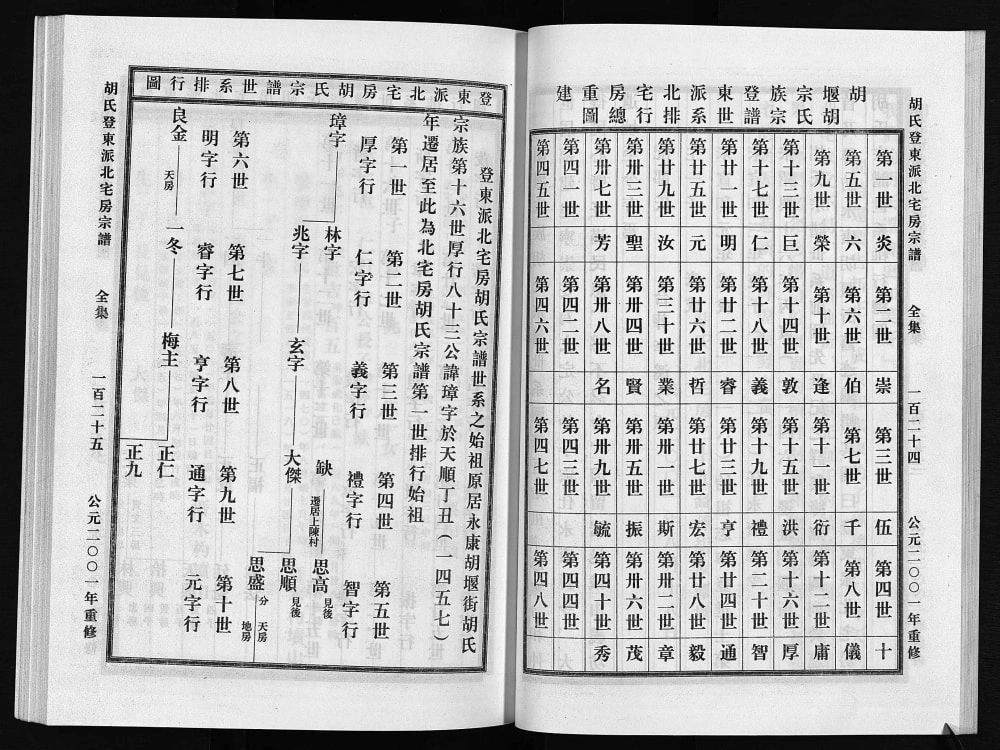 胡氏登東派北宅房宗譜 全集 一百二十四 公元二〇〇一年重修
胡堰宗族登東派北宅房重建
胡氏宗譜世系排行總圖
第一世 炎 第二世 崇 第三世 伍 第四世 十
第五世 六 第六世 伯 第七世 千 第八世 儀
第九世 榮 第十世 逢 第十一世 衍 第十二世 庸
第十三世 巨 第十四世 敦 第十五世 洪 第十六世 厚
第十七世 仁 第十八世 義 第十九世 禮 第二十世 智
第廿一世 明 第廿二世 睿 第廿三世 亨 第廿四世 通
第廿五世 元 第廿六世 哲 第廿七世 宏 第廿八世 毅
第廿九世 汝 第三十世 業 第卅一世 斯 第卅二世 章
第卅三世 聖 第卅四世 賢 第卅五世 振 第卅六世 茂
第卅七世 芳 第卅八世 名 第卅九世 毓 第四十世 秀
第四一世 第四二世 第四三世 第四四世
第四五世 第四六世 第四七世 第四八世
登東派北宅房胡氏宗譜世系排行圖
登東派北宅房胡氏宗譜世系之始祖原居永康胡堰街胡氏
宗族第十六世厚行八十三公諱璋字於天順丁丑(一四五七)
年遷居至此為北宅房胡氏宗譜第一世排行始祖
第一世 第二世 第三世 第四世 第五世
厚字行 仁字行 義字行 禮字行 智字行
璋字 林字 缺 遷居上陳村 思高 見後
兆字 玄字 大傑 思順 見後
思盛 分 天房 地房
第六世 第七世 第八世 第九世 第十世
明字行 睿字行 亨字行 通字行 元字行
良金 天房 一冬 梅主 正仁
正九
胡氏登東派北宅房宗譜 全集 一百二十五 公元二〇〇一年重修